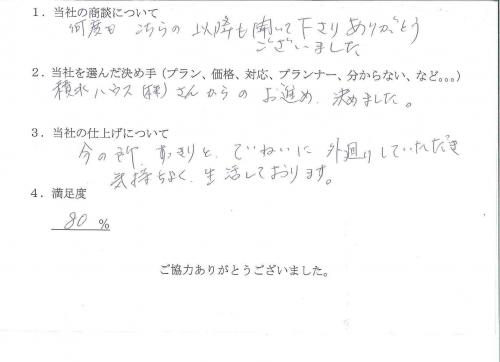 1．当社の商談について
何度も こちらの 以降も 聞いて下さり ありがとう
ございました
2．当社を選んだ決め手（プラン、価格、対応、プランナー、分からない、など。。。）
積水ハウス(株)さんからの お進め、決めました。
3．当社の仕上げについて
今の所、すっきりと、ていねいに 外廻りしていただき
気持ちよく、生活しております。
4．満足度
80 %
ご協力ありがとうございました。